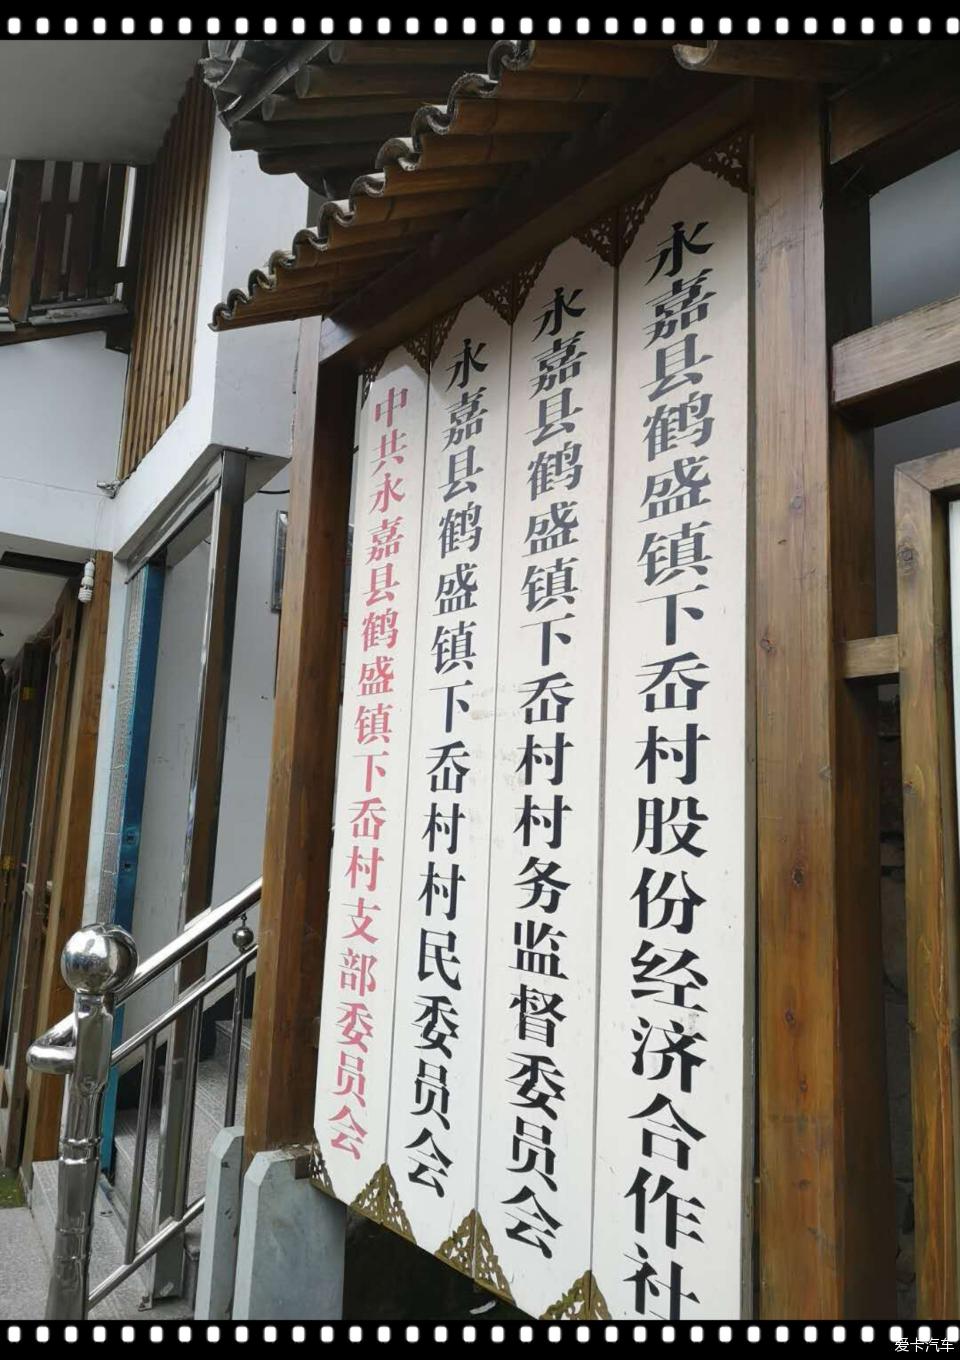 中共永嘉县鹤盛镇下岙村支部委员会
永嘉县鹤盛镇下岙村村民委员会
永嘉县鹤盛镇下岙村村务监督委员会
永嘉县鹤盛镇下岙村股份经济合作社
爱卡汽车